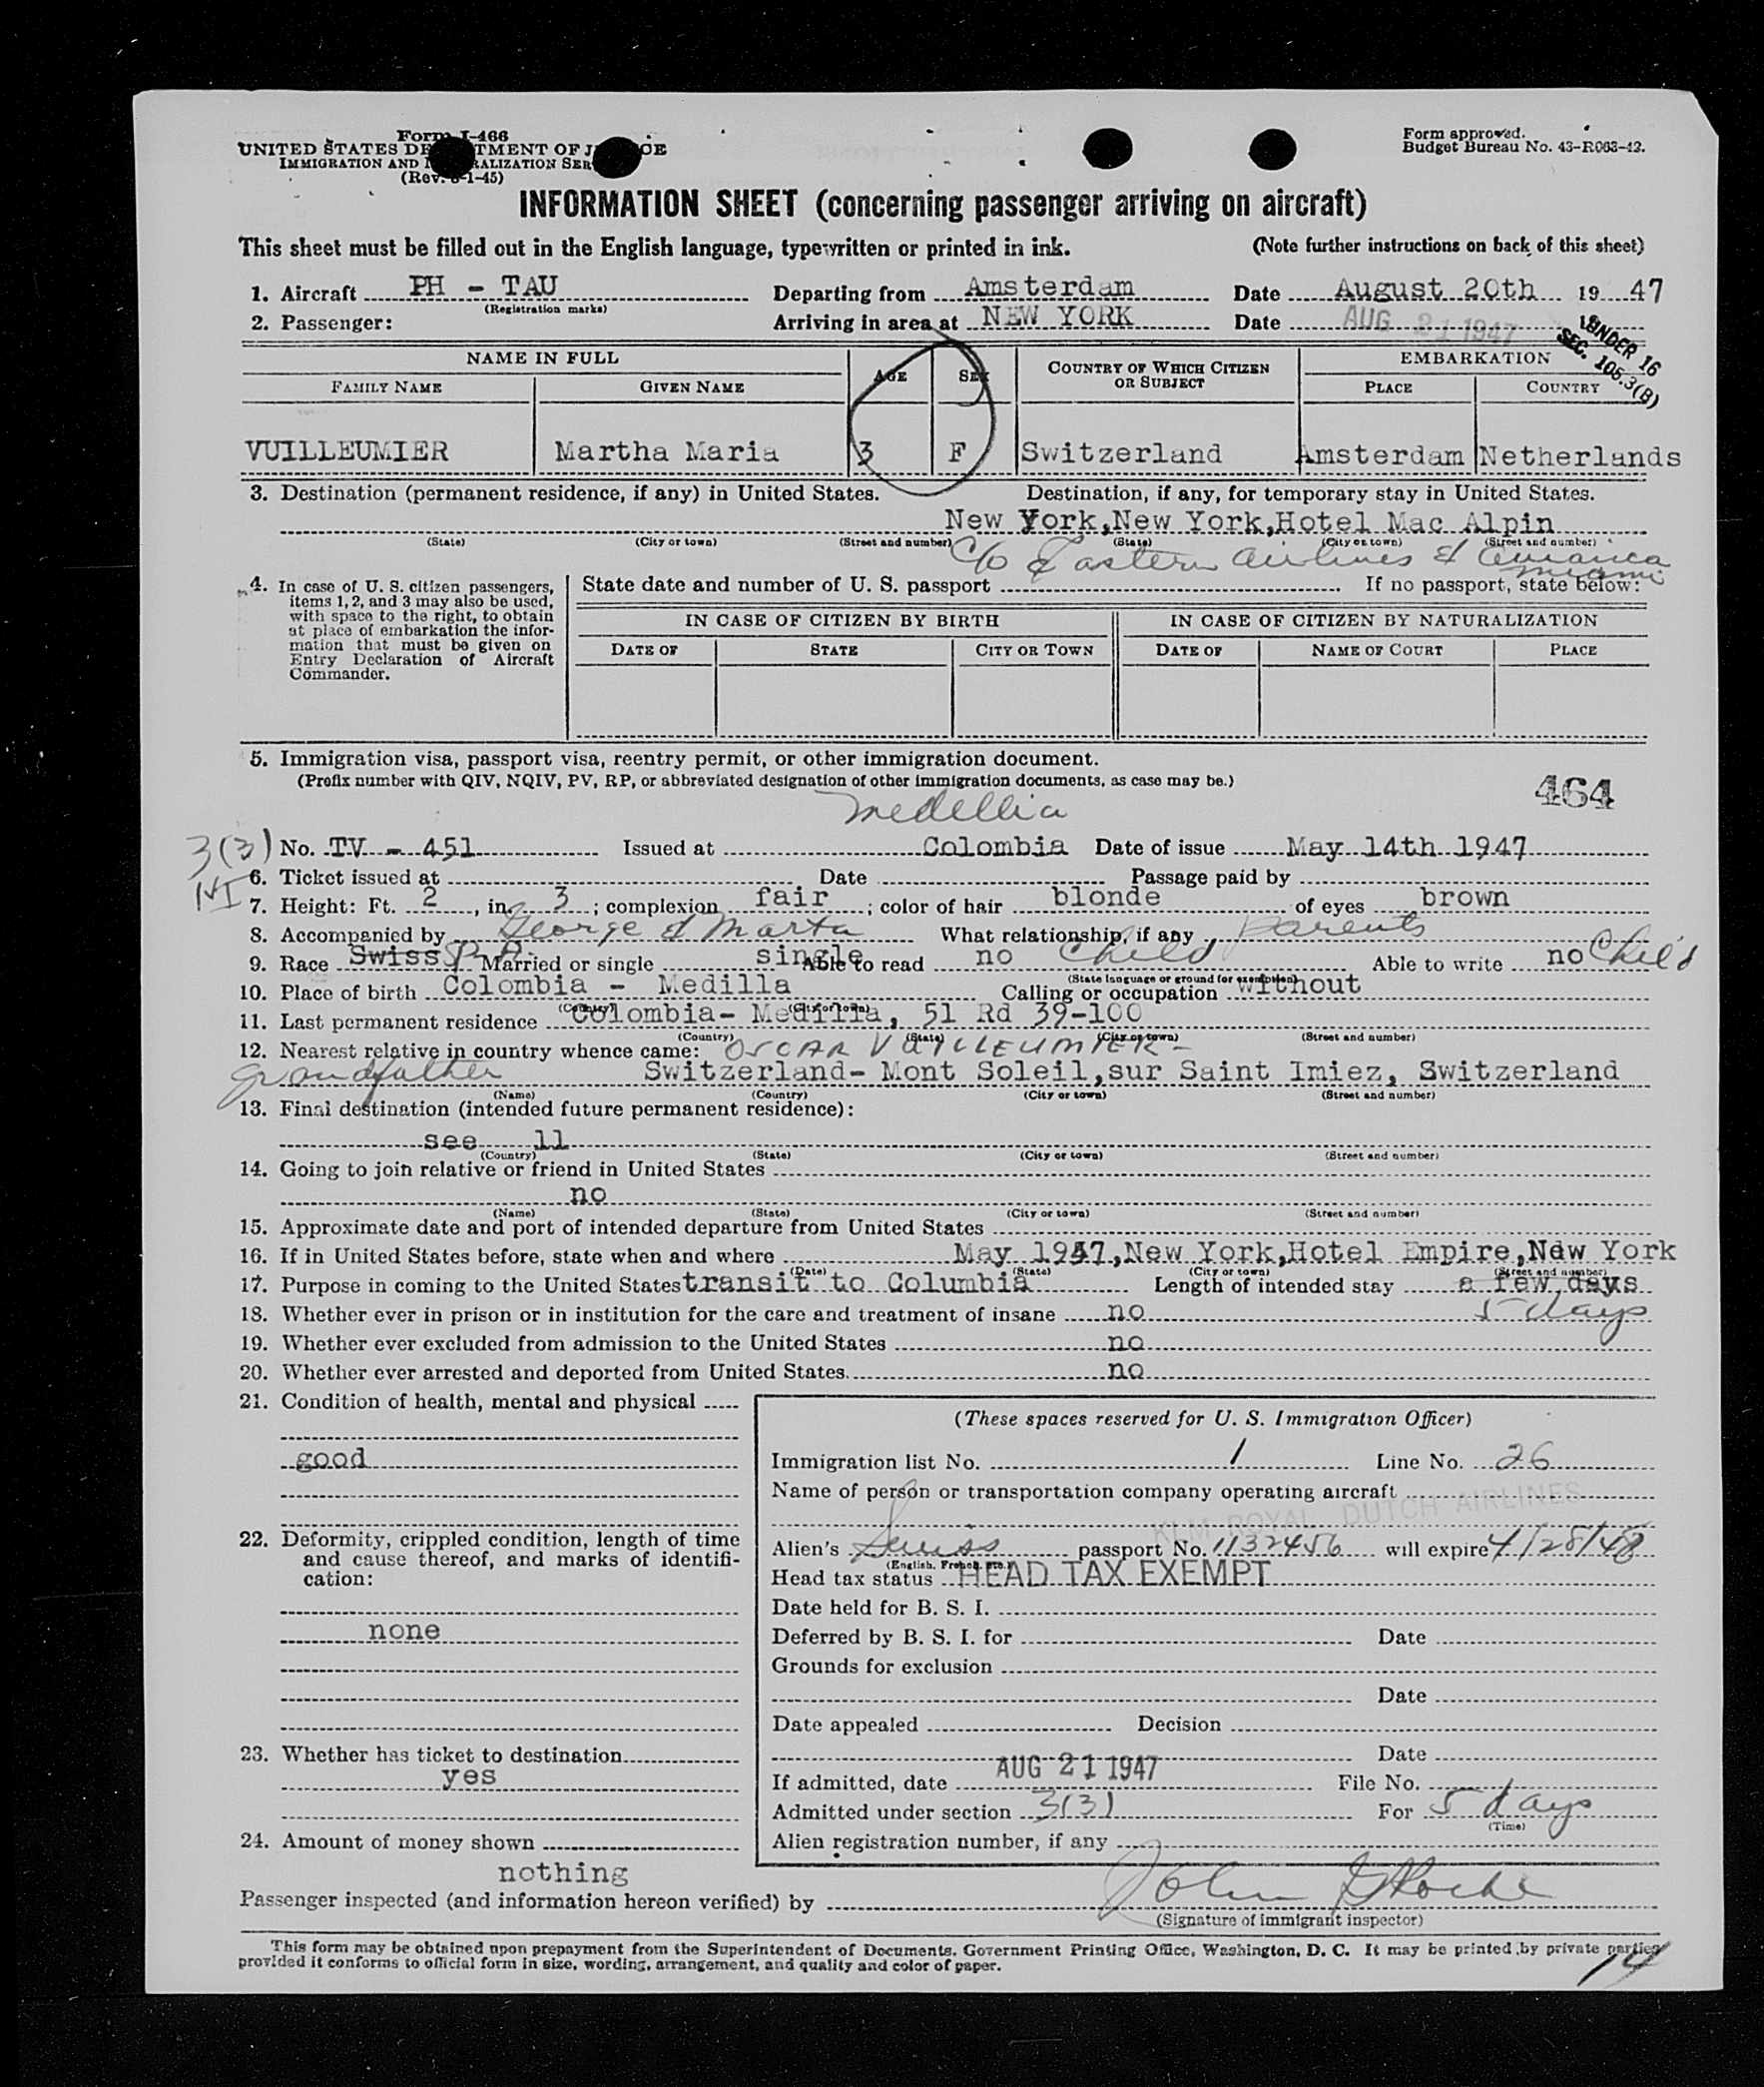 Form I-466
UNITED STATES DEPARTMENT OF JUSTICE
IMMIGRATION AND NATURALIZATION SERVICE
(Rev. 6-1-45)
Form approved.
Budget Bureau No. 43-R063-42.
INFORMATION SHEET (concerning passenger arriving on aircraft)
This sheet must be filled out in the English language, typewritten or printed in ink. (Note further instructions on back of this sheet)
1. Aircraft PH - TAU Departing from Amsterdam Date August 20th 19 47
(Registration marks)
2. Passenger: Arriving in area at NEW YORK Date AUG 21 1947 19
UNDER 16
SEC. 105.3(B)
NAME IN FULL AGE SEX COUNTRY OF WHICH CITIZEN OR SUBJECT EMBARKATION
FAMILY NAME GIVEN NAME PLACE COUNTRY
VUILLEUMIER Martha Maria 3 F Switzerland Amsterdam Netherlands
3. Destination (permanent residence, if any) in United States. Destination, if any, for temporary stay in United States.
New York, New York, Hotel Mac Alpin
(State) (City or town) (Street and number) (State) (City or town) (Street and number)
C/o Eastern Airlines
Miami
4. In case of U. S. citizen passengers, items 1, 2, and 3 may also be used, with space to the right, to obtain at place of embarkation the information that must be given on Entry Declaration of Aircraft Commander.
State date and number of U. S. passport If no passport, state below:
IN CASE OF CITIZEN BY BIRTH IN CASE OF CITIZEN BY NATURALIZATION
DATE OF STATE CITY OR TOWN DATE OF NAME OF COURT PLACE
5. Immigration visa, passport visa, reentry permit, or other immigration document.
(Prefix number with QIV, NQIV, PV, RP, or abbreviated designation of other immigration documents, as case may be.)
464
Medellia
3(3) No. TV - 451 Issued at Colombia Date of issue May 14th 1947
6. Ticket issued at Date Passage paid by
7. Height: Ft. 2, in. 3; complexion fair; color of hair blonde of eyes brown
8. Accompanied by George & Marta What relationship, if any Parents
9. Race Swiss Married or single single Able to read no Child Able to write no Child
(State language or ground for exemption)
10. Place of birth Colombia - Medilla Calling or occupation without
(Country) (City or town)
11. Last permanent residence Colombia- Medilla, 51 Rd 39-100
(Country) (State) (City or town) (Street and number)
12. Nearest relative in country whence came: OSCAR VUILLEUMIER -
Grandfather Switzerland- Mont Soleil, sur Saint Imiez, Switzerland
(Name) (Country) (City or town) (Street and number)
13. Final destination (intended future permanent residence):
see 11
(Country) (State) (City or town) (Street and number)
14. Going to join relative or friend in United States
no
(Name) (State) (City or town) (Street and number)
15. Approximate date and port of intended departure from United States
16. If in United States before, state when and where May 1947, New York, Hotel Empire, New York
(Date) (State) (City or town) (Street and number)
17. Purpose in coming to the United States transit to Columbia Length of intended stay a few days
5 days
18. Whether ever in prison or in institution for the care and treatment of insane no
19. Whether ever excluded from admission to the United States no
20. Whether ever arrested and deported from United States. no
21. Condition of health, mental and physical
good
22. Deformity, crippled condition, length of time and cause thereof, and marks of identification:
none
23. Whether has ticket to destination
yes
24. Amount of money shown
nothing
(These spaces reserved for U. S. Immigration Officer)
Immigration list No. 1 Line No. 26
Name of person or transportation company operating aircraft
KLM ROYAL DUTCH AIRLINES
Alien's Swiss passport No. 1132456 will expire 4/28/48
(English, French, etc.)
Head tax status HEAD TAX EXEMPT
Date held for B. S. I.
Deferred by B. S. I. for Date
Grounds for exclusion
Date
Date appealed Decision
Date
If admitted, date AUG 21 1947 File No.
Admitted under section 3(3) For 5 days
(Time)
Alien registration number, if any
Passenger inspected (and information hereon verified) by John
(Signature of immigrant inspector)
This form may be obtained upon prepayment from the Superintendent of Documents, Government Printing Office, Washington, D. C. It may be printed by private parties
provided it conforms to official form in size, wording, arrangement, and quality and color of paper.
14